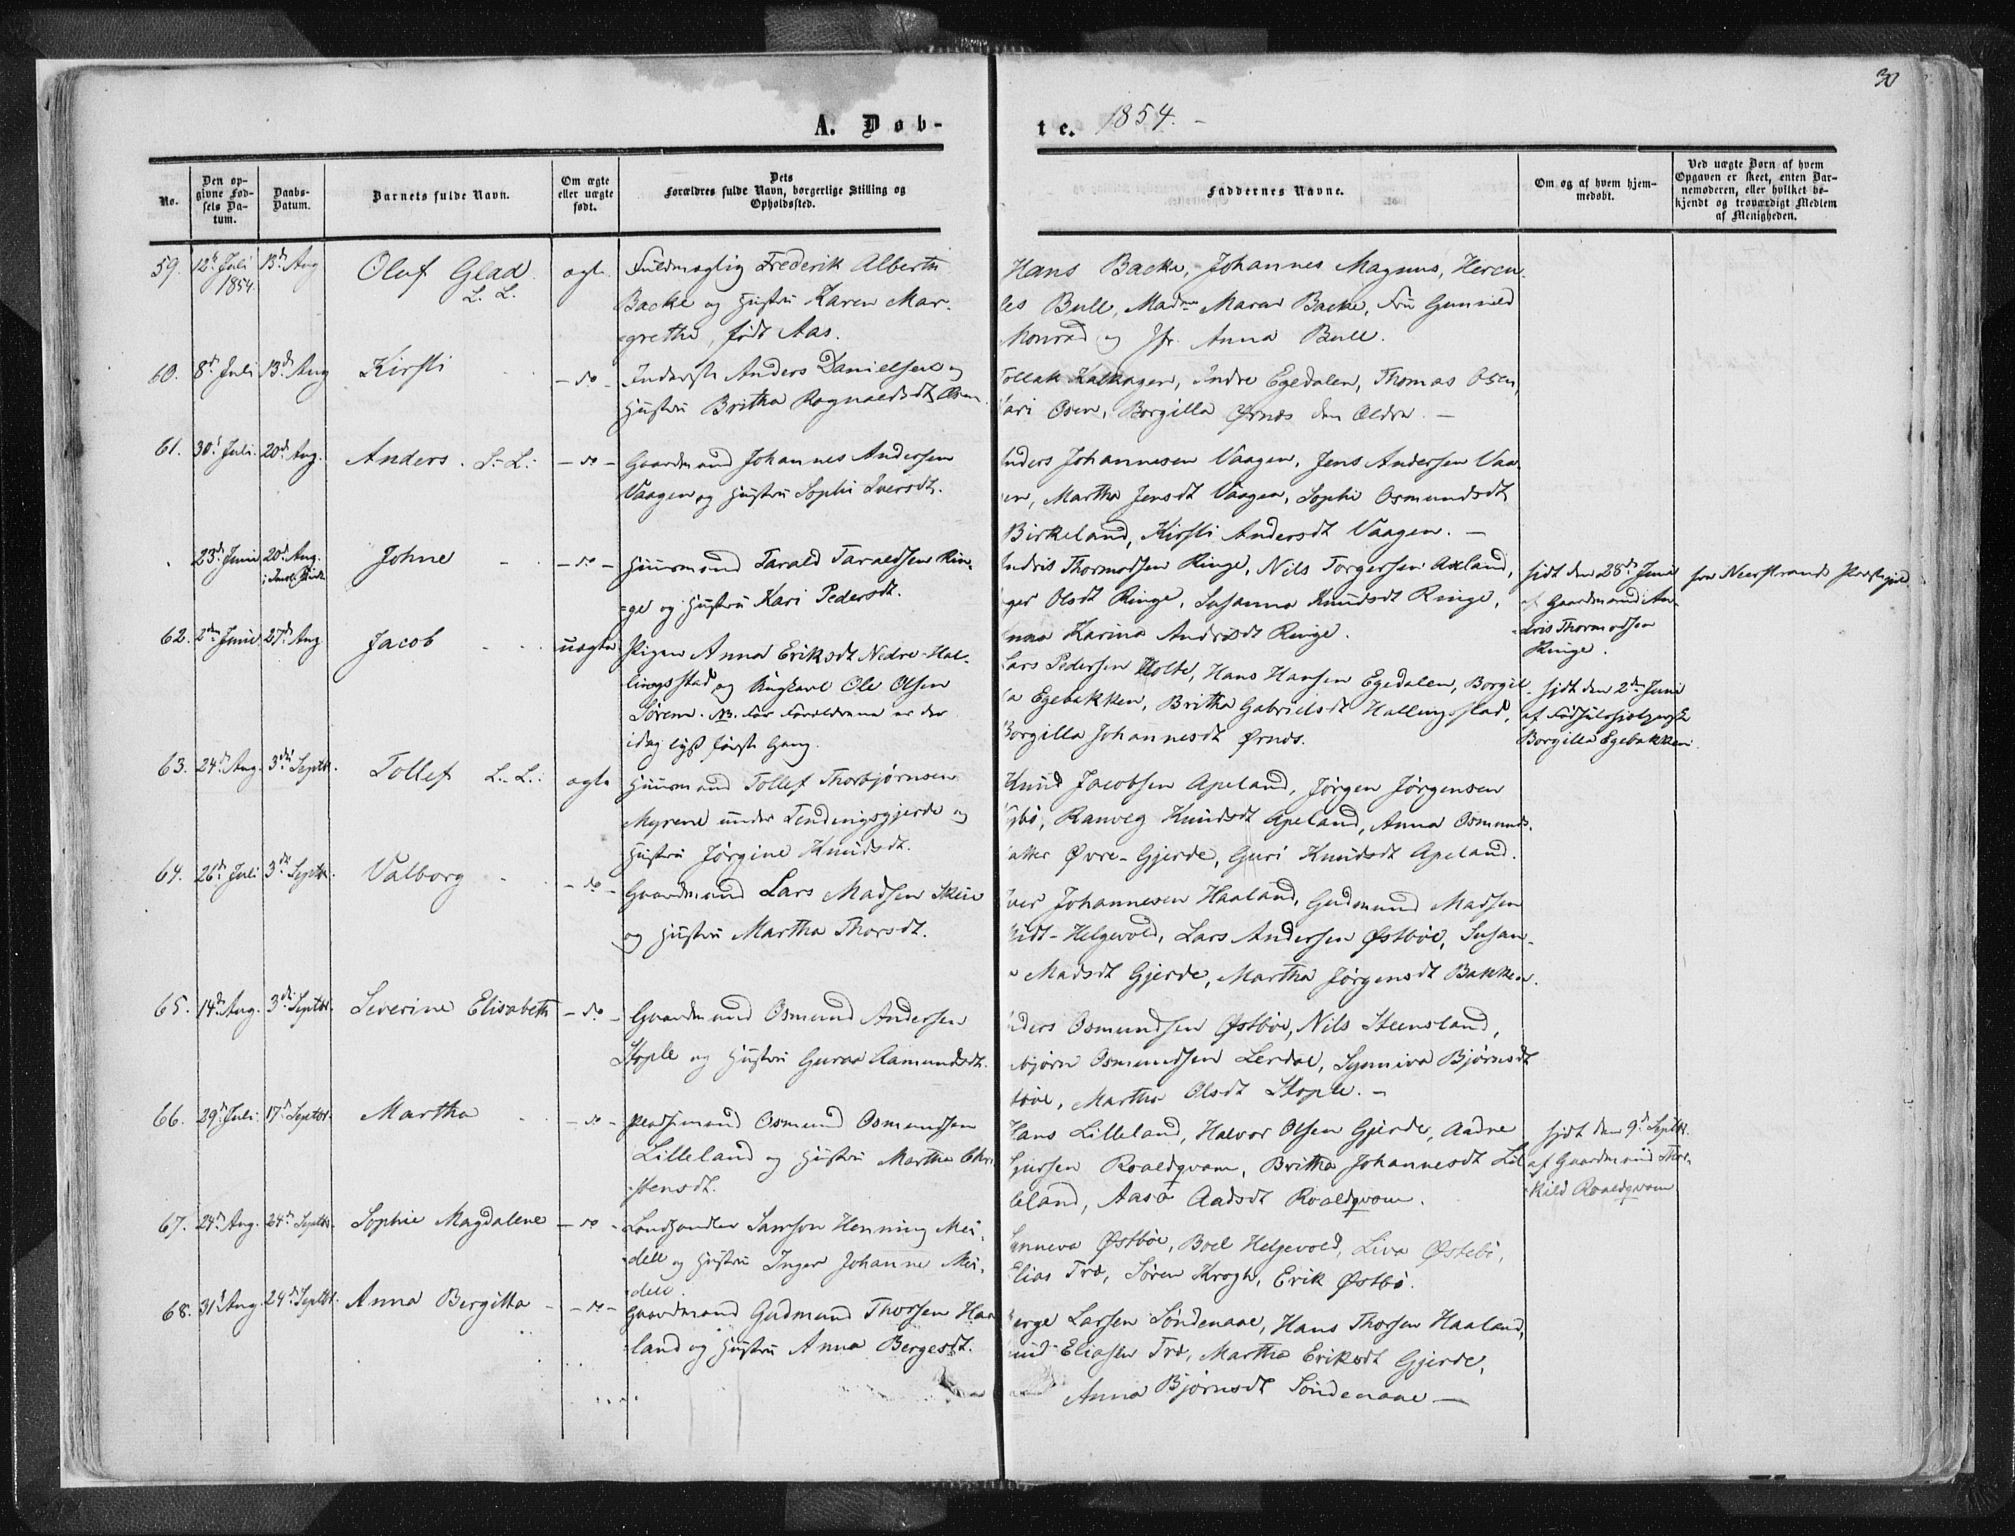 30
A. Døb-
te. 1854.
No.
Den opgivne Fødsels Datum.
Daabs-Datum.
Barnets fulde Navn.
Om ægte eller uægte født.
Dets Forældres fulde Navn, borgerlige Stilling og Opholdssted.
Faddernes Navne.
Om og af hvem hjemmedøbt.
Ved uægte Børn af hvem Opgaven er skeet, enten Barnemoderen, eller hvilket bekjendt og troværdigt Medlem af Menigheden.
59. 12te Juli 1854. 13de Aug Olaf Glad L. L. ægte
Fuldmægtig Frederik Alberth
Backe og Hustru Karen Mar-
grethe, født Aas.
Hans Backe, Johannes Magnus, Hercu-
les Bull, Madme Maren Backe, Fru Gunnild
Monrad og Jfr. Anna Bull.
60. 8de Juli 13de Aug Kirsti - do -
Inderste Anders Danielsen og
Hustru Britha Ragnaldsdt, Osen.
Tollak Kalhagen, Endre Egedalen, Thomas Osen,
Kari Osen, Borgilla Ørnæs den Ældre. -
61. 30te Juli. 20de Aug. Anders. L. L. - do -
Gaardmand Johannes Andersen
Vaagen og Hustru Sophi Iversdt.
Anders Johannesen Vaagen, Jens Andersen Vaa-
en, Martha Jensdt Vaagen, Sophi Osmundsdt
Birkeland, Kirsti Andersdt Vaagen. -
23de Junii 20de Aug. Johne - do -
Huusmand Tarald Taraldsen Rin-
ge og Hustru Kari Pedersdt.
Andris Thormodsen Ringe, Nils Torgersen Axland,
ger Olsdt Ringe, Susanna Knudsdt Ringe,
Anna Karina Andrisdt Ringe.
hjdt den 28de Juni
af Gaardmand An-
dris Thormodsen
Ringe.
fra Neerstrands Præstegjeld
62. 2den Junii. 27de Aug Jacob uægte
Pigen Anna Eriksdt Nedre-Hal-
lingsstad og Ungkarl Ole Olsen
Sørene. NB. For Forældrene er der
idag lyst første Gang.
Lars Pedersen Holte, Hans Hansen Egedalen, Borgil-
la Egebakken, Britha Gabrielsdt Hallingstad,
Borgilla Johannesdt Ørnæs.
hjdt den 2den Juni
af Fødselshjelperske
Borgilla Egebakken.
63. 24de Aug. 3die Septbr. Tollef L. L. ægte
Huusmand Tollef Thorbjørnsen
Myrene under Tendingsgjerde og
Hustru Jørgine Knudsdt.
Knud Jacobsen Apeland, Jørgen Jørgensen
Ranveg Knudsdt Apeland, Anna Osmunds-
datter Øvre-Gjerde, Guri Knudsdt Apeland.
64. 26de Juli 3die Septbr. Valborg - do -
Gaardmand Lars Madsen Skeie
og Hustru Martha Thorsdt.
Iver Johannesen Haaland, Gudmund Madsen
Midt-Helgevold, Lars Andersen Østbøe, Susan-
a Madsdt Gjerde, Martha Jørgensdt Bakken.
65. 14de Aug. 3die Septbr. Severine Elisabeth - do -
Gaardmand Osmund Andersen
Stople og Hustru Guroa Aamundsdt.
Anders Osmundsen Østbøe, Nils Steensland,
bjørn Osmundsen Lerdal, Synniva Bjørnsdt
bøe, Martha Olsdt Stople. -
66. 29de Juli. 17de Septbr. Martha - do -
Pladsmand Osmund Osmundsen
Lilleland og Hustru Martha Chri-
stensdt.
Hans Lilleland, Halvor Olsen Gjerde, Aadne
Roaldqvam, Britha Johannesdt Lil-
leland, Aasa Aadsdt Roaldqvam.
hjdt den 9de Septbr.
af Gaardmand Thor-
kild Roaldqvam
67. 24de Aug. 24de Septbr. Sophie Magdalene - do -
Landhandler Samson Henning Mei-
dell og Hustru Inger Johanne Mei-
dell.
Synneva Østbøe, Boel Helgevold, Liva Østebø,
Elias Træ, Søren Krogh, Erik Østbø.
68. 31te Aug. 24de Septbr. Anna Bergitta - do -
Gaardmand Gudmund Thorsen Haa-
land og Hustru Anna Bergesdt.
Berge Larsen Søndenaae, Hans Thorsen Haaland,
Eliasen Træ, Martha Eriksdt Gjerde,
Anna Bjørnsdt Søndenaae -